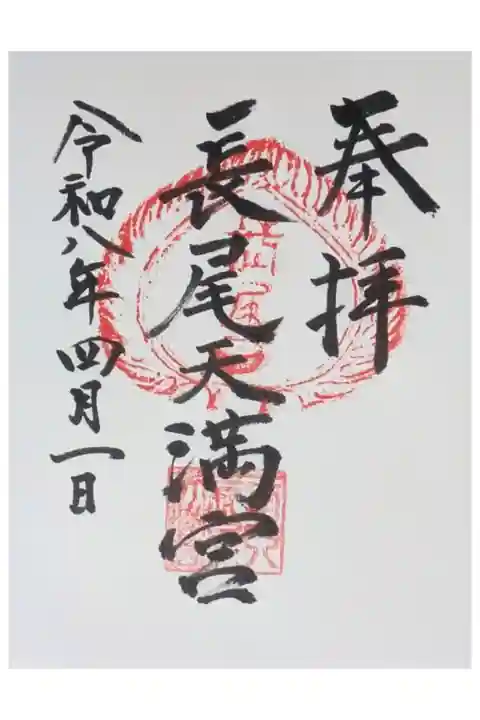 奉拝
長尾天満宮
令和八年四月一日